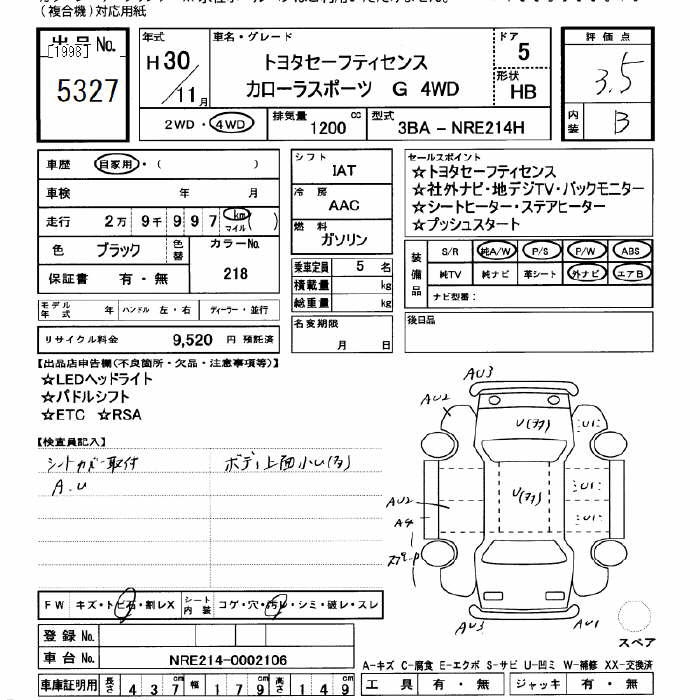 (複合機)対応用紙
出品No.
[1998]
5327
年式
H30/11月
車名・グレード
トヨタセーフティセンス
カローラスポーツ G 4WD
ドア
5
形状
HB
評価点
3.5
内装
B
2WD・4WD
排気量 1200 cc
型式 3BA-NRE214H
車歴 自家用・( )
車検 年 月
走行 2万 9千 9 9 7 km マイル ( )
色 ブラック 色替 カラーNo.
218
保証書 有・無
モデル年式 年 ハンドル 左・右 ディーラー・並行
リサイクル料金 9,520 円 預託済
シフト
IAT
冷房
AAC
燃料
ガソリン
乗車定員 5 名
積載量 kg
総重量 kg
名変期限
月 日
セールスポイント
☆トヨタセーフティセンス
☆社外ナビ・地デジTV・バックモニター
☆シートヒーター・ステアヒーター
☆プッシュスタート
装備品
S/R 純A/W P/S P/W ABS
純TV 純ナビ 革シート 外ナビ エアB
ナビ型番:
後日品
【出品店申告欄(不良箇所・欠品・注意事項等)】
☆LEDヘッドライト
☆パドルシフト
☆ETC ☆RSA
【検査員記入】
シートカバー取付
ボディ上面小U(多)
A.U
AU3
AU2
U(多)
U(多)
AU2
A4
AU3
AU2
FW キズ・トビ石・割レX シート内装 コゲ・穴・汚レ・シミ・破レ・スレ
登録No.
車台No. NRE214-0002106
車庫証明用 長さ 437cm 幅 179cm 高さ 149cm
スペア
A-キズ C-腐食 E-エクボ S-サビ U-凹ミ W-補修 XX-交換済
工具 有・無 ジャッキ 有・無